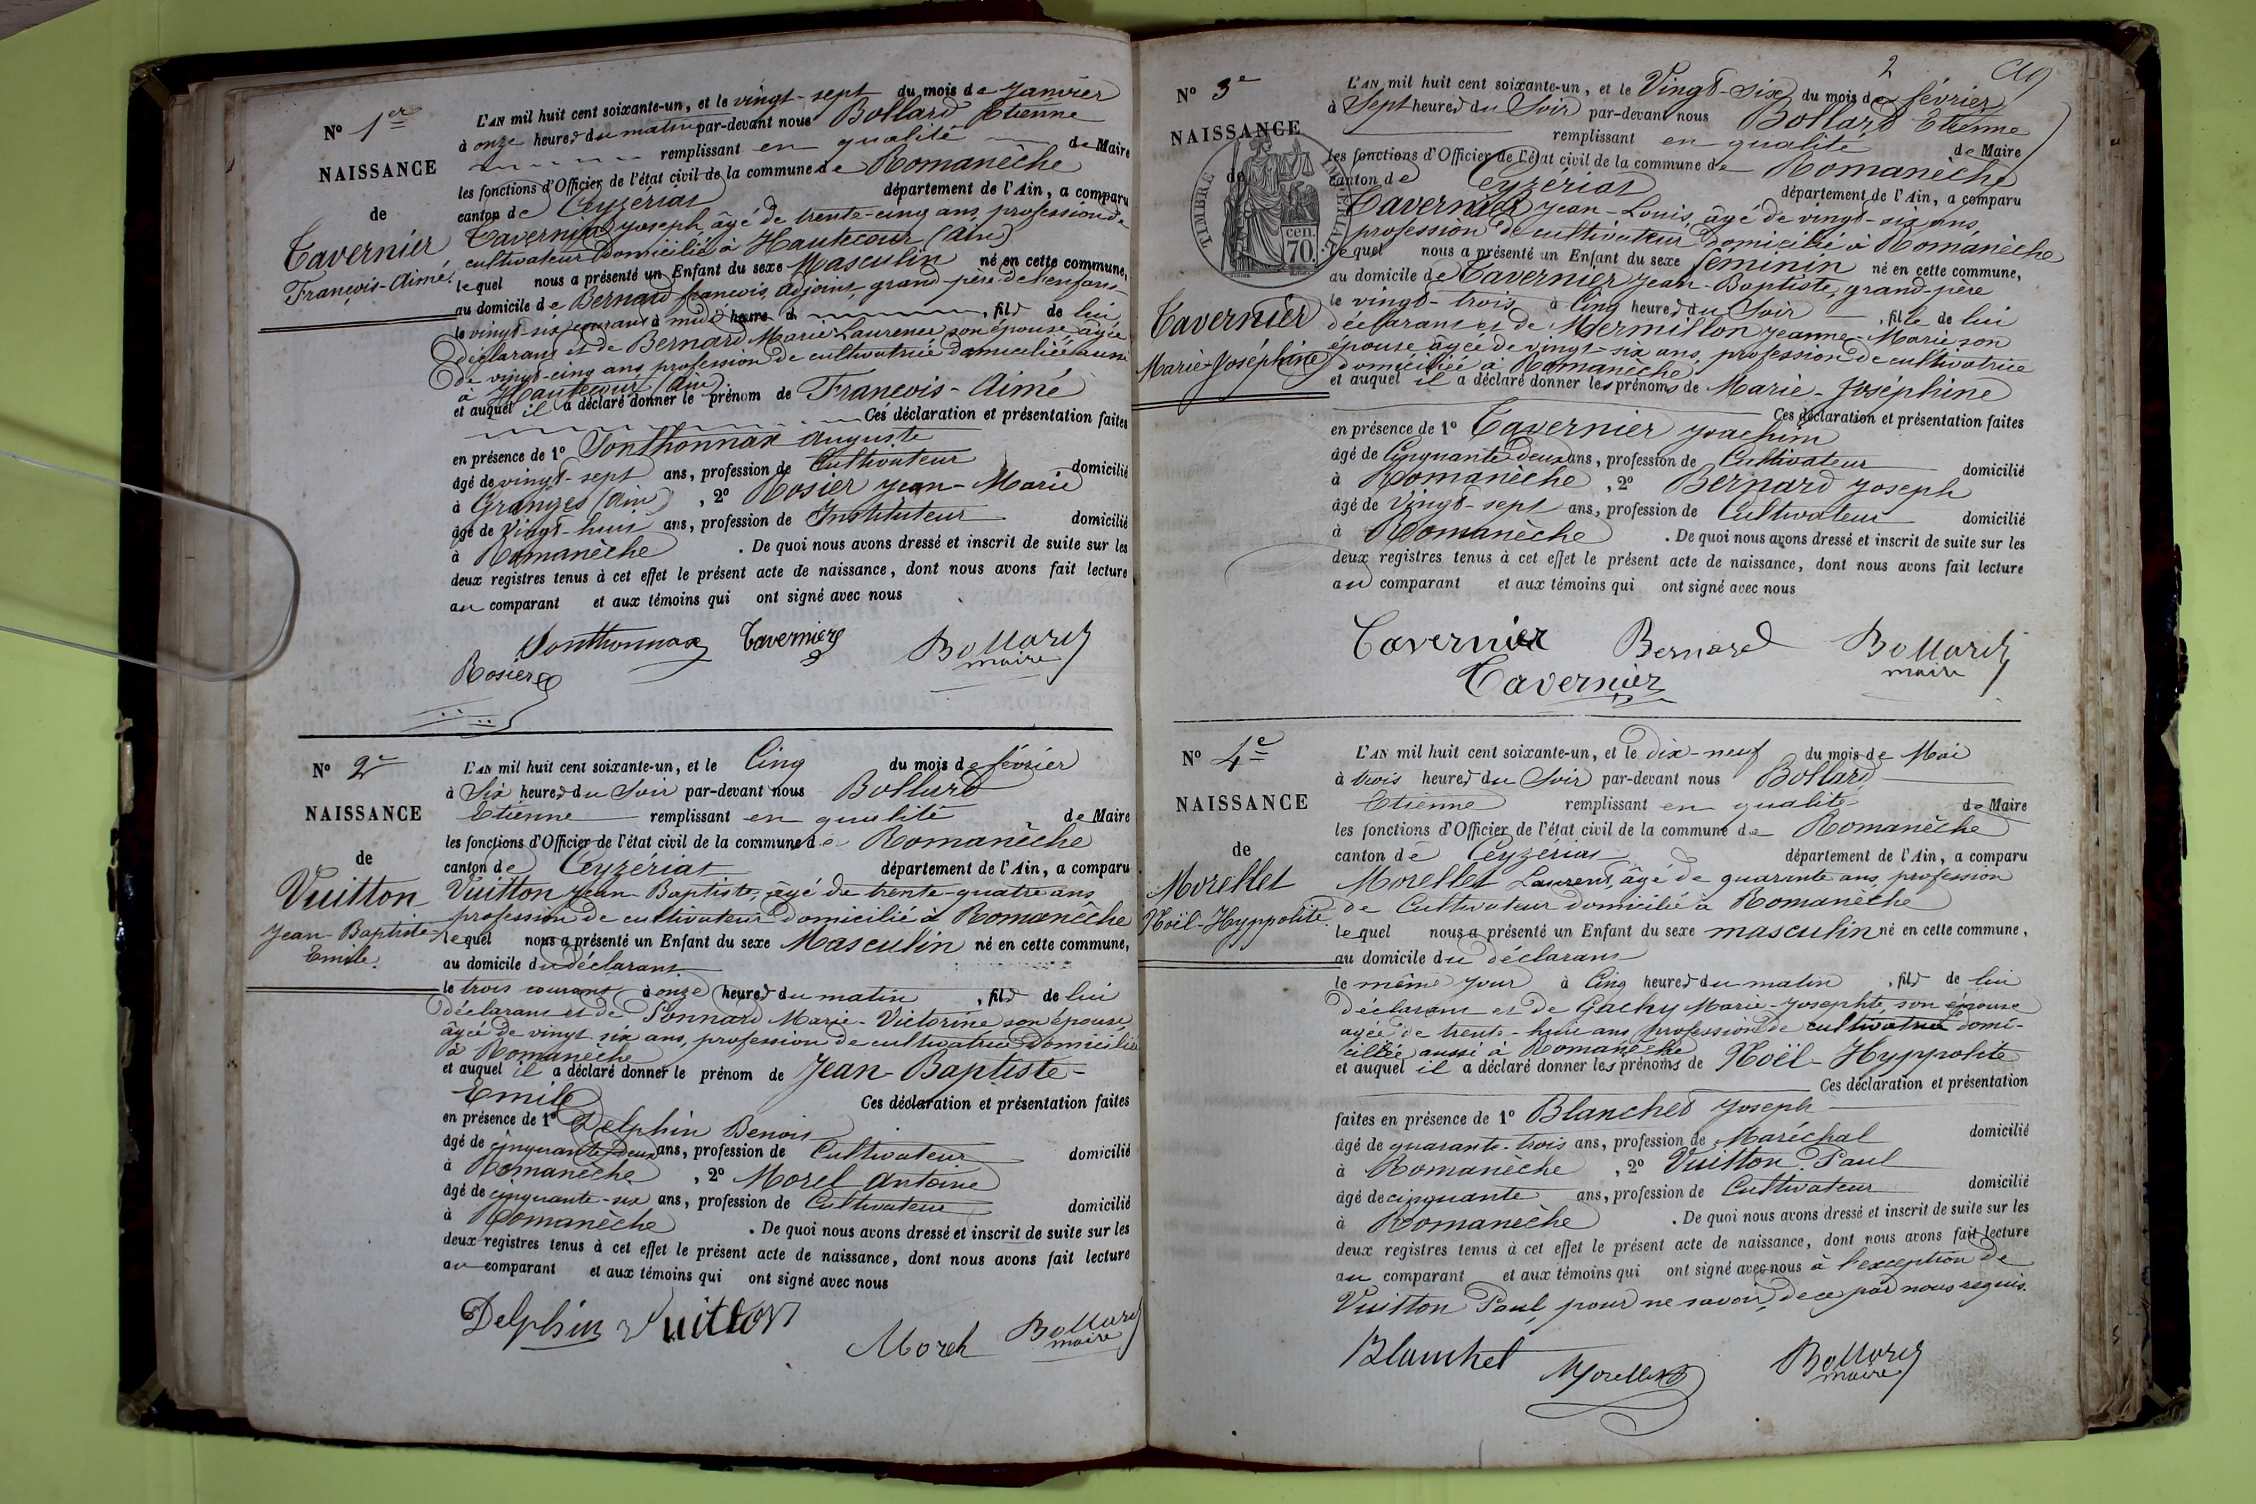 N° 1er
NAISSANCE
de
Tavernier
François-Aimé.
L'AN mil huit cent soixante-un, et le vingt-sept du mois de Janvier
à onze heures du matin par-devant nous Bollard Etienne
remplissant en qualité de Maire
les fonctions d'Officier de l'état civil de la commune de Romanèche
canton de Ceyzériat département de l'Ain, a comparu
Tavernier Joseph, âgé de trente-cinq ans, profession de
cultivateur domicilié à Hautecour (Ain)
lequel nous a présenté un Enfant du sexe Masculin né en cette commune,
au domicile de Bernard françois, adjoint, grand-père de l'enfant
le vingt-six courant à midi heure d , fils de lui
déclarant et de Bernard Marie Laurence son épouse âgée
de vingt-cinq ans, profession de cultivatrice domiciliée aussi
à Hautecour (Ain)
et auquel il a déclaré donner le prénom de François-Aimé
Ces déclaration et présentation faites
en présence de 1° Sonthonnax Auguste
âgé de vingt-sept ans, profession de Cultivateur domicilié
à Granges (Ain) , 2° Rosier Jean-Marie
âgé de Vingt-huit ans, profession de Instituteur domicilié
à Romanèche . De quoi nous avons dressé et inscrit de suite sur les
deux registres tenus à cet effet le présent acte de naissance, dont nous avons fait lecture
au comparant et aux témoins qui ont signé avec nous
Sonthonnax Tavernier Bollard
Rosier maire
N° 2e
NAISSANCE
de
Vuitton
Jean-Baptiste-
Emile.
L'AN mil huit cent soixante-un, et le Cinq du mois de février
à Six heures du Soir par-devant nous Bollard
Etienne remplissant en qualité de Maire
les fonctions d'Officier de l'état civil de la commune de Romanèche
canton de Ceyzériat département de l'Ain, a comparu
Vuitton Jean-Baptiste, âgé de trente-quatre ans,
profession de cultivateur domicilié à Romanèche
lequel nous a présenté un Enfant du sexe Masculin né en cette commune,
au domicile du déclarant
le trois courant à onze heures du matin , fils de lui
déclarant et de Sonnard Marie-Victorine son épouse,
âgée de vingt six ans, profession de cultivatrice domiciliée
à Romanèche
et auquel il a déclaré donner le prénom de Jean-Baptiste-
Emile Ces déclaration et présentation faites
en présence de 1° Delphin Benoit
âgé de cinquante-deux ans, profession de Cultivateur domicilié
à Romanèche , 2° Morel Antoine
âgé de cinquante-six ans, profession de Cultivateur domicilié
à Romanèche . De quoi nous avons dressé et inscrit de suite sur les
deux registres tenus à cet effet le présent acte de naissance, dont nous avons fait lecture
au comparant et aux témoins qui ont signé avec nous
Delphin Vuitton Morel Bollard
maire
2
N° 3e
NAISSANCE
de
TIMBRE IMPERIAL
70 cen.
Tavernier
Marie-Joséphine
L'AN mil huit cent soixante-un, et le Vingt-six du mois de février
à Sept heures du Soir par-devant nous Bollard Etienne
remplissant en qualité de Maire
les fonctions d'Officier de l'état civil de la commune de Romanèche
canton de Ceyzériat département de l'Ain, a comparu
Tavernier Jean-Louis, âgé de vingt-six ans,
profession de cultivateur domicilié à Romanèche
lequel nous a présenté un Enfant du sexe féminin né en cette commune,
au domicile de Tavernier Jean-Baptiste, grand-père
le vingt-trois à Cinq heures du Soir , fille de lui
déclarant et de Mermillon Jeanne-Marie son
épouse âgée de vingt-six ans, profession de cultivatrice
domiciliée à Romanèche
et auquel il a déclaré donner les prénoms de Marie-Joséphine
Ces déclaration et présentation faites
en présence de 1° Tavernier Joachim
âgé de Cinquante deux ans, profession de Cultivateur domicilié
à Romanèche , 2° Bernard Joseph
âgé de Vingt-sept ans, profession de Cultivateur domicilié
à Romanèche . De quoi nous avons dressé et inscrit de suite sur les
deux registres tenus à cet effet le présent acte de naissance, dont nous avons fait lecture
au comparant et aux témoins qui ont signé avec nous
Tavernier Bernard Bollard
Tavernier maire
N° 4e
NAISSANCE
de
Morellet
Noël-Hyppolite
L'AN mil huit cent soixante-un, et le dix-neuf du mois de Mai
à trois heures du Soir par-devant nous Bollard
Etienne remplissant en qualité de Maire
les fonctions d'Officier de l'état civil de la commune de Romanèche
canton de Ceyzériat département de l'Ain, a comparu
Morellet Laurent, âgé de quarante ans, profession
de Cultivateur domicilié à Romanèche
lequel nous a présenté un Enfant du sexe masculin né en cette commune,
au domicile du déclarant
le même jour à Cinq heures du matin , fils de lui
déclarant et de Gachy Marie-Josephte, son épouse
agée de trente-huit ans profession de cultivatrice domi-
ciliée aussi à Romanèche
et auquel il a déclaré donner les prénoms de Noël-Hyppolite
Ces déclaration et présentation
faites en présence de 1° Blanchet Joseph
âgé de quarante-trois ans, profession de Maréchal domicilié
à Romanèche , 2° Vuitton Paul
âgé de cinquante ans, profession de Cultivateur domicilié
à Romanèche . De quoi nous avons dressé et inscrit de suite sur les
deux registres tenus à cet effet le présent acte de naissance, dont nous avons fait lecture
au comparant et aux témoins qui ont signé avec nous à l'exception de
Vuitton Paul, pour ne savoir, de ce par nous requis.
Blanchet Morellet Bollard
maire